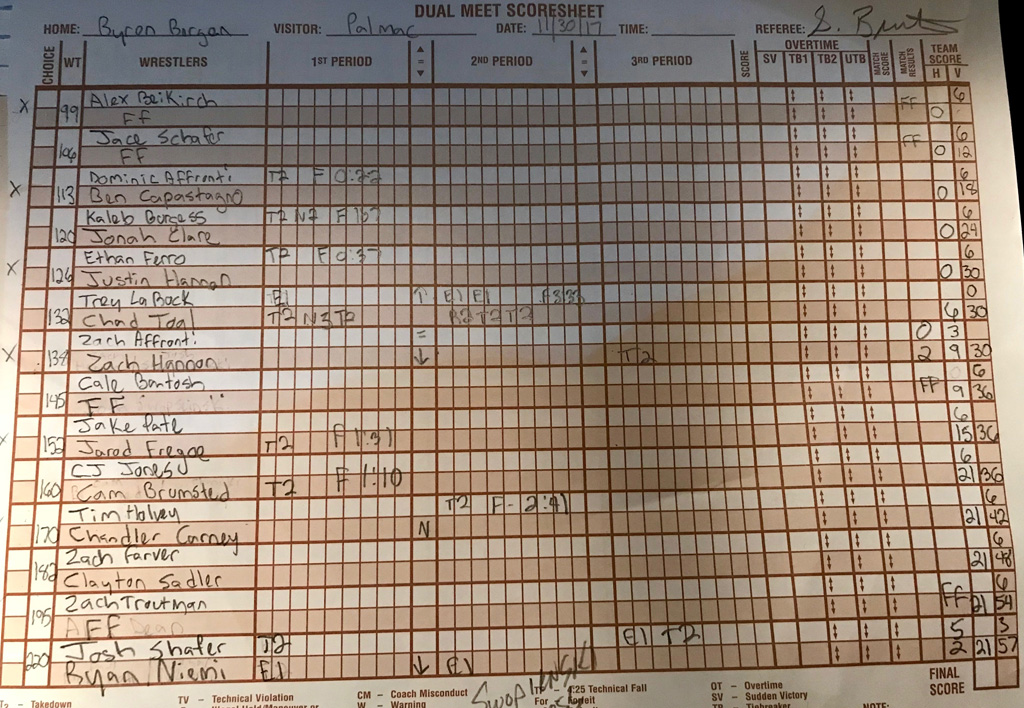 DUAL MEET SCORESHEET
HOME: Byron Bergen VISITOR: Palmac DATE: 11/30/17 TIME: REFEREE:
CHOICE WT WRESTLERS 1ST PERIOD 2ND PERIOD 3RD PERIOD SCORE OVERTIME SV TB1 TB2 UTB MATCH SCORE MATCH RESULTS TEAM SCORE H V
Alex Beikirch FF 6
X 99 FF 0
Jace Schafer FF 6
106 FF 0 12
Dominic Affronti T2 F 0:22 6
X 113 Ben Capastagno 0 18
Kaleb Burgess T2 N2 F 1:07 6
120 Jonah Clare 0 24
Ethan Ferro T2 F 0:37 6
X 126 Justin Hannan 0 30
Trey LaBock E1 ↑ E1 E1 F 3:33 0
132 Chad Toal T2 N3 T2 R2 T2 T2 6 30
Zach Affronti = 0 3
X 138 Zach Hannon ↓ T2 2 9 30
Cale Bantosh FF 6
145 FF 9 36
Jake Pate 6
X 152 Jarod Fregoe T2 F 1:31 15 36
CJ Jones 6
160 Cam Brumsted T2 F 1:10 21 36
Tim Holvey T2 F- 2:41 6
170 Chandler Carney N 21 42
Zach Farver 6
182 Clayton Sadler 21 48
Zach Troutman FF 6
195 FF 21 54
Josh Shafer T2 E1 T2 5 3
220 Ryan Niemi E1 ↓ E1 2 21 57
FINAL SCORE
T2 – Takedown TV – Technical Violation CM – Coach Misconduct 4:25 Technical Fall OT – Overtime
W – Warning For – Forfeit SV – Sudden Victory
TB – Tiebreaker NOTE: